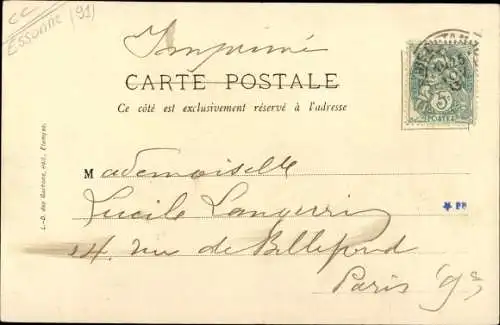 CC
Essonne (91)
Imprimé
CARTE POSTALE
Ce côté est exclusivement réservé à l'adresse
5
POSTES
L.-D. des Gachons, édit., Etampes.
Mademoiselle
Lucile
rue de Bellefond
Paris (9e